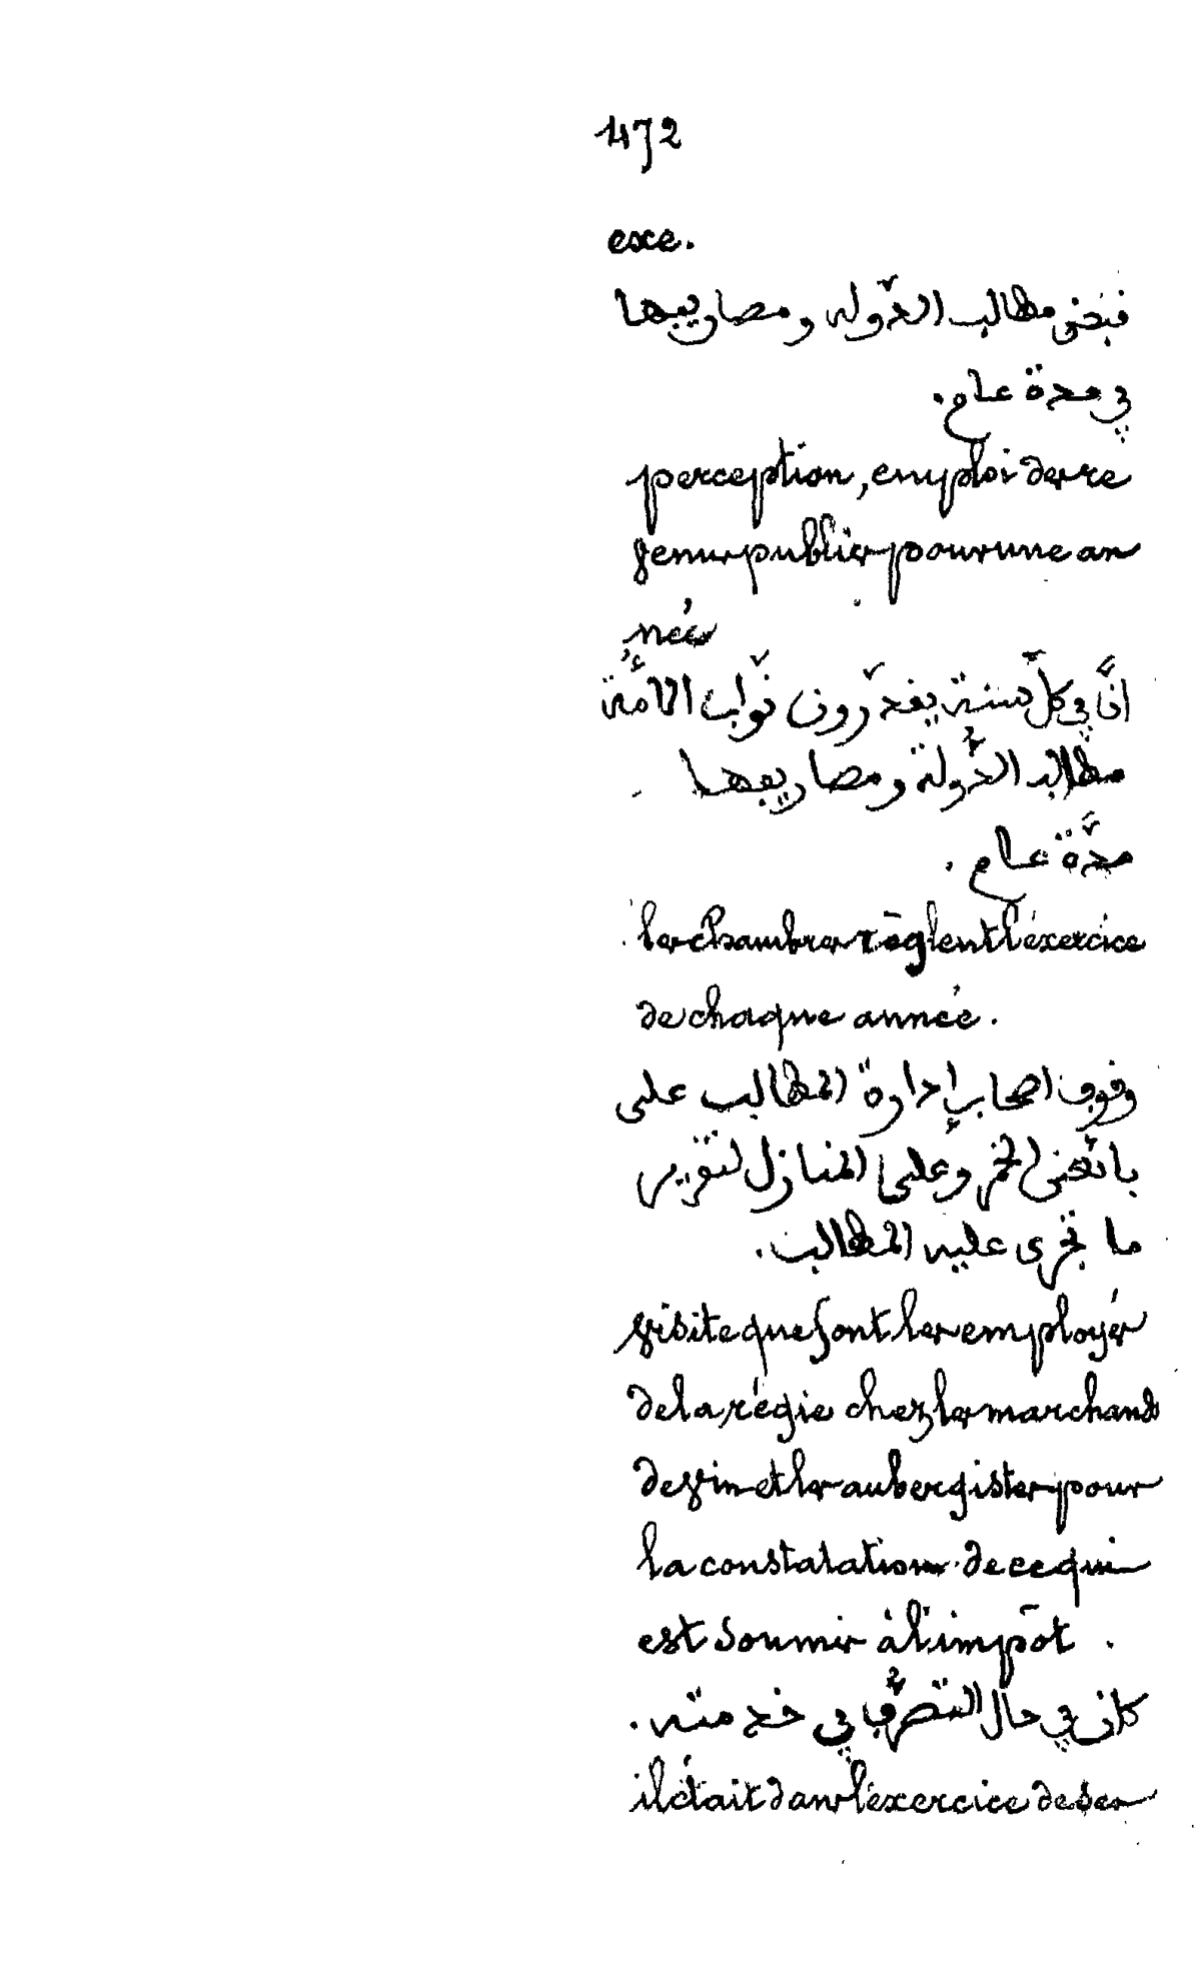 1472
exe.
فبض مطالب الدّوله ومصاريبها
في مدة عام.
perception, emploi des re
venus publics pour une an
née
انّ في كلّ سنة يفدّرون نوّاب الأمّة
مطالب الدّولة ومصاريبها
مدّة عام.
les chambres règlent l'éxercice
de chaque année.
وفوف اصحاب إدارة المطالب على
بائعين الخمر وعلى المنازل لتقرير
ما تجرى عليه المطالب.
visite que font les employés
de la régie chez les marchands
de vin et les aubergistes pour
la constatation de ce qui
est soumis à l'impôt.
كان في حال التصرّف في خدمته.
il était dans l'exercice de ses